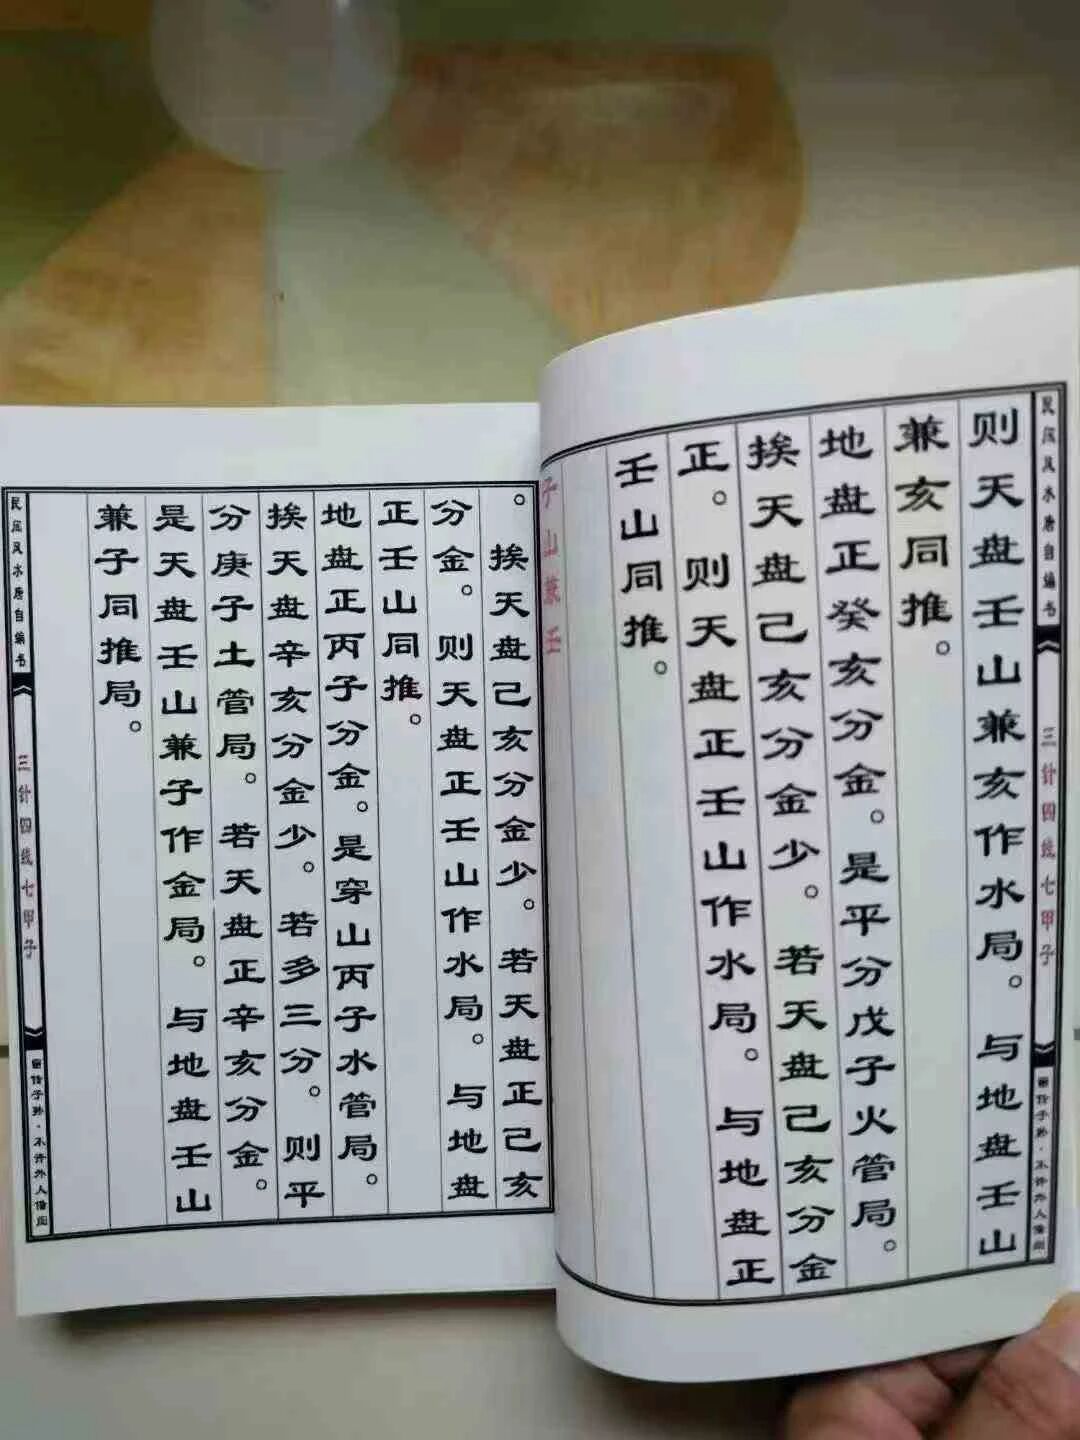 则天盘壬山兼亥作水局。与地盘壬山
兼亥同推。
地盘正癸亥分金。是平分戊子火管局。
挨天盘己亥分金少。若天盘己亥分金
正。则天盘正壬山作水局。与地盘正
壬山同推。
子山兼壬
三针四线七甲子
。挨天盘己亥分金少。若天盘正己亥
分金。则天盘正壬山作水局。与地盘
正壬山同推。
地盘正丙子分金。是穿山丙子水管局。
挨天盘辛亥分金少。若多三分。则平
分庚子土管局。若天盘正辛亥分金。
是天盘壬山兼子作金局。与地盘壬山
兼子同推局。
三针四线七甲子